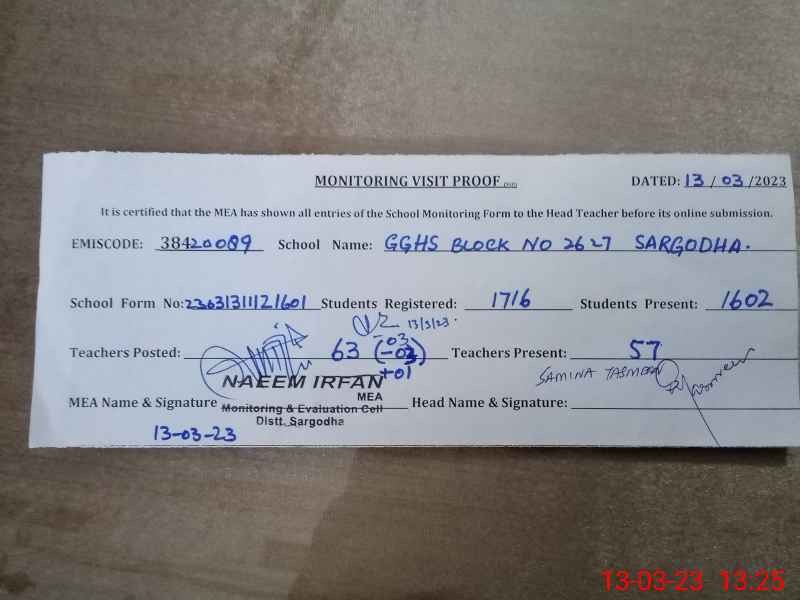 MONITORING VISIT PROOF DATED: 13 / 03 /2023
It is certified that the MEA has shown all entries of the School Monitoring Form to the Head Teacher before its online submission.
EMISCODE: 38420089 School Name: GGHS BLOCK NO 26-27 SARGODHA.
School Form No: Students Registered: 1716 Students Present: 1602
13/3/23.
Teachers Posted: 63 Teachers Present: 57
-03
+01
NAEEM IRFAN
SAMINA TASMEEN
MEA
MEA Name & Signature Monitoring & Evaluation Cell Head Name & Signature:
Distt. Sargodha
13-03-23
13-03-23 13:25